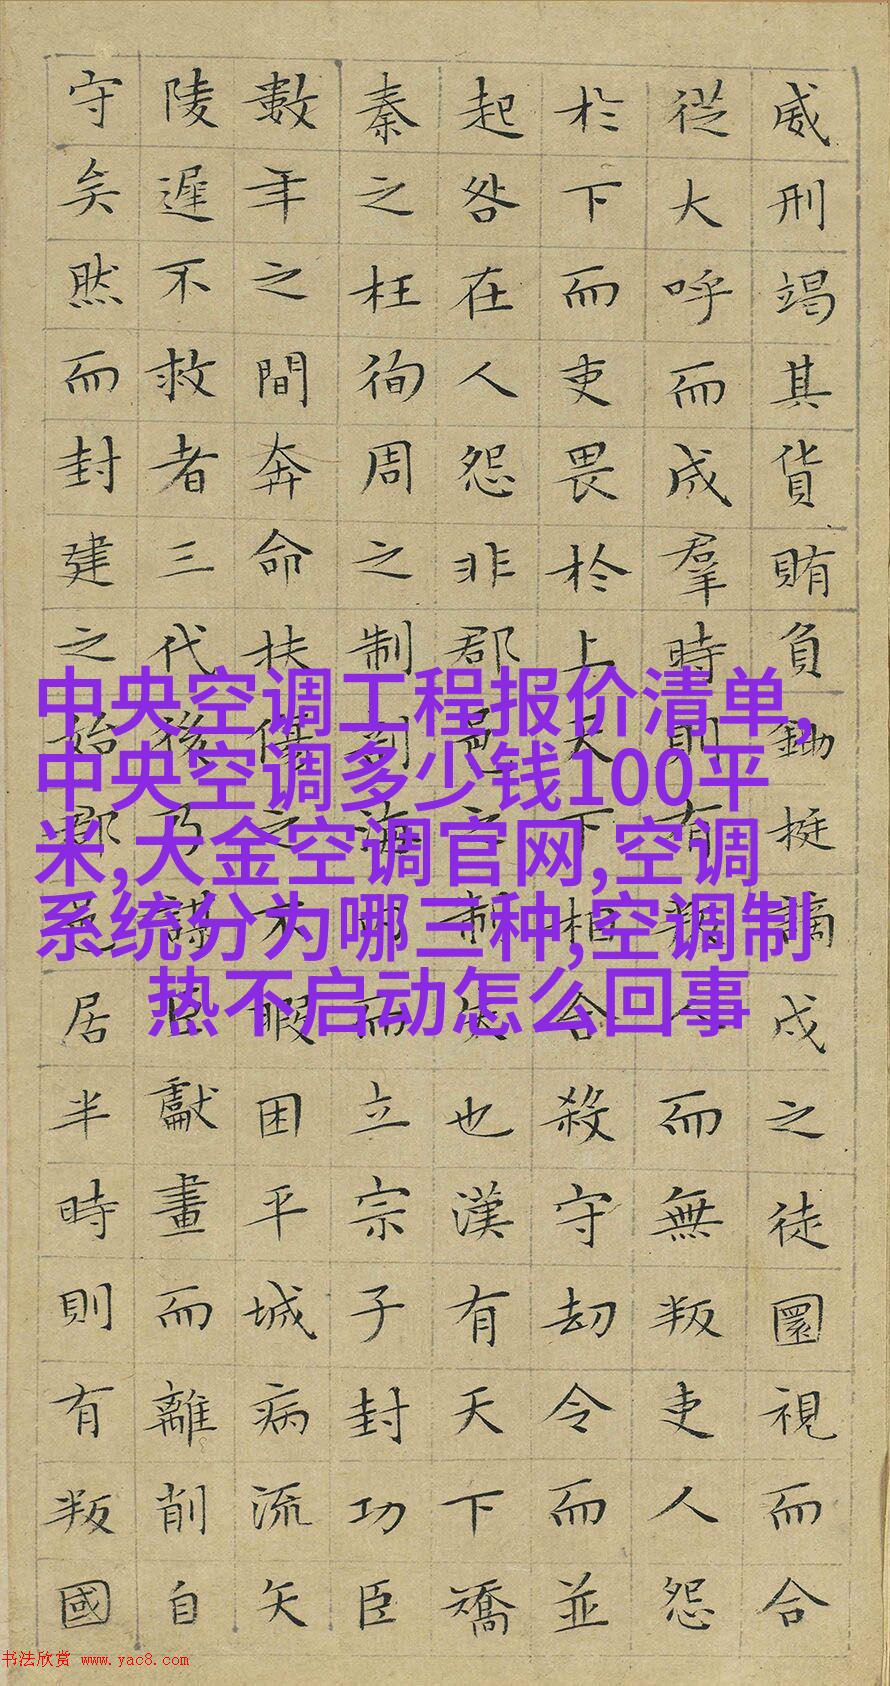 威刑竭其貨賄負鋤梃謫戍之徒圜視而合
從大呼而成羣時則有叛人而無叛吏人怨
於下而吏畏於上天下相合殺守劫令而並
起咎在人怨非郡邑之制失也漢有天下矯
秦之枉徇周之制剖海內而立宗子封功臣
數年之間奔命扶傷之不暇困平城病流矢
陵遲不救者三代後乃謀臣獻畫而離削自
守矣然而封建之始郡邑居半時則有叛國
中央空调工程报价清单,
中央空调多少钱100平
米,大金空调官网,空调
系统分为哪三种,空调制
热不启动怎么回事
书法欣赏 www.yac8.com